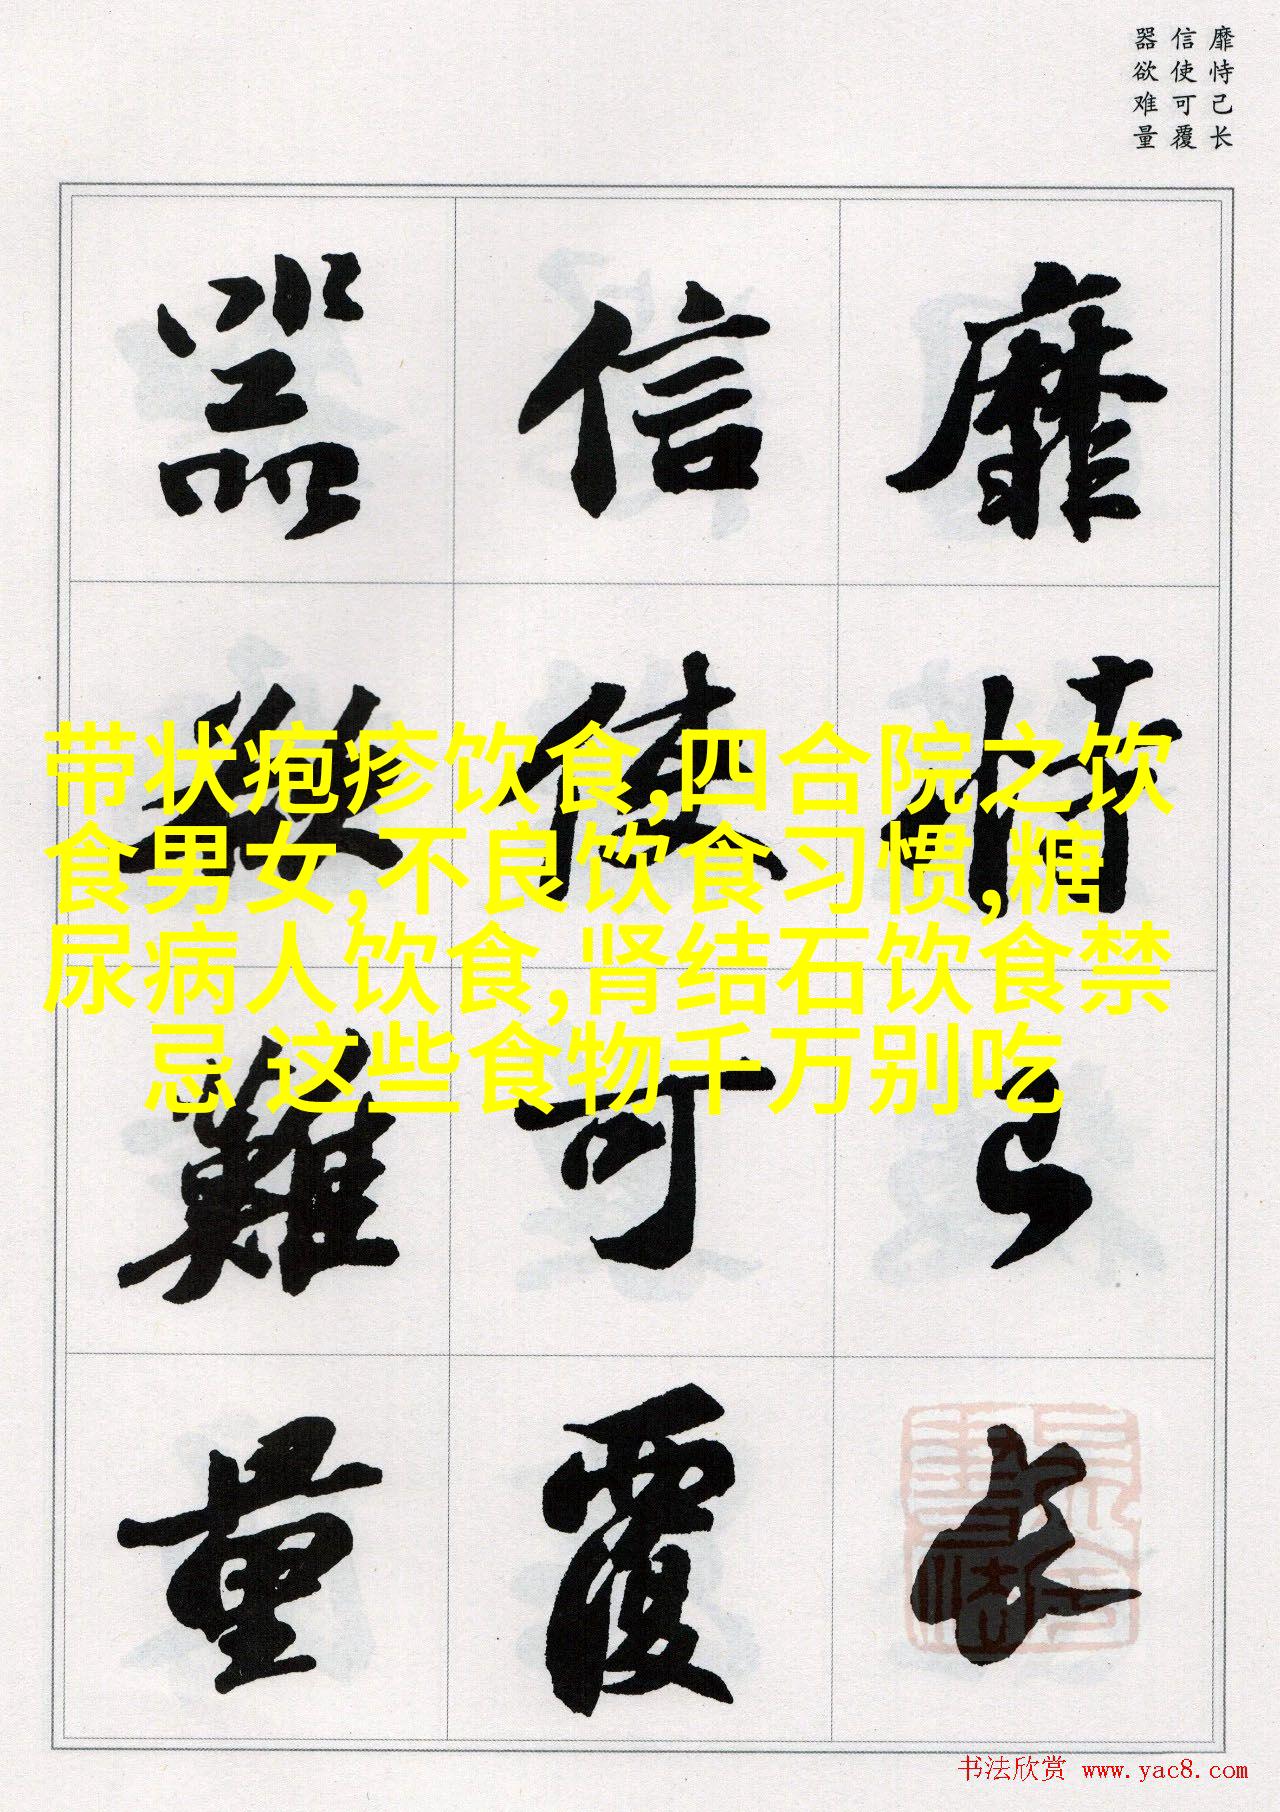 靡恃己长
信使可覆
器欲难量
靡恃己长
信使可覆
器欲難量
带状疱疹饮食,四合院之饮
食男女,不良饮食习惯,糖
尿病人饮食,肾结石饮食禁
忌 这些食物千万别吃
书法欣赏 www.yac8.com